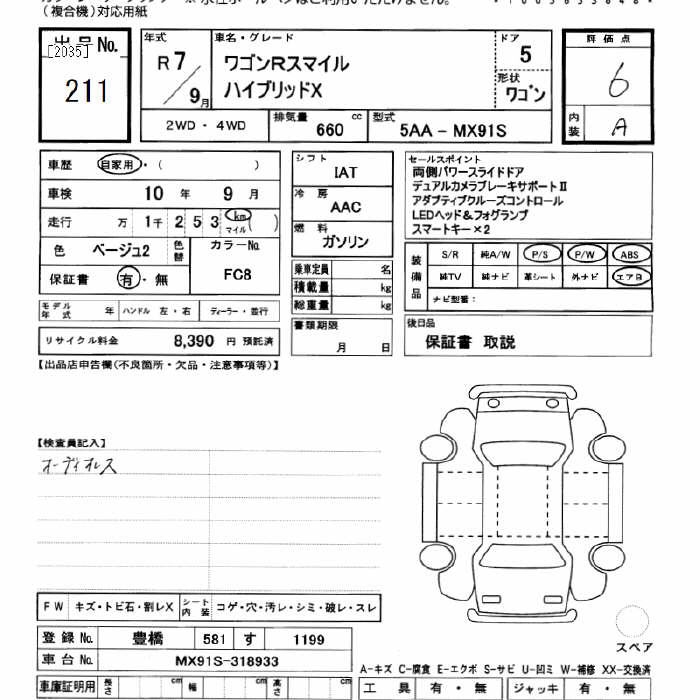 (複合機)対応用紙
出品No.
[2035]
211
年式
R7/9月
車名・グレード
ワゴンRスマイル
ハイブリッドX
ドア
5
形状
ワゴン
評価点
6
内装
A
2WD・4WD
排気量
660 cc
型式
5AA-MX91S
車歴 自家用・( )
車検 10年 9月
走行 万 1千 2 5 3 km マイル
色 ベージュ2 色替
カラーNo.
FC8
保証書 有・無
モデル年式 年 ハンドル 左・右 ディーラー・並行
リサイクル料金 8,390円 預託済
シフト
IAT
冷房
AAC
燃料
ガソリン
乗車定員 名
積載量 kg
総重量 kg
書類期限
月 日
セールスポイント
両側パワースライドドア
デュアルカメラブレーキサポートⅡ
アダプティブクルーズコントロール
LEDヘッド&フォグランプ
スマートキー×2
装備品
S/R 純A/W P/S P/W ABS
純TV 純ナビ 革シート 外ナビ エアB
ナビ型番:
後日品
保証書 取説
【出品店申告欄(不良箇所・欠品・注意事項等)】
【検査員記入】
オーディオレス
FW キズ・トビ石・割レX シート内装 コゲ・穴・汚レ・シミ・破レ・スレ
登録No. 豊橋 581 す 1199
車台No. MX91S-318933
車庫証明用 長さ cm 幅 cm 高さ cm
スペア
A-キズ C-腐食 E-エクボ S-サビ U-凹ミ W-補修 XX-交換済
工具 有・無 ジャッキ 有・無